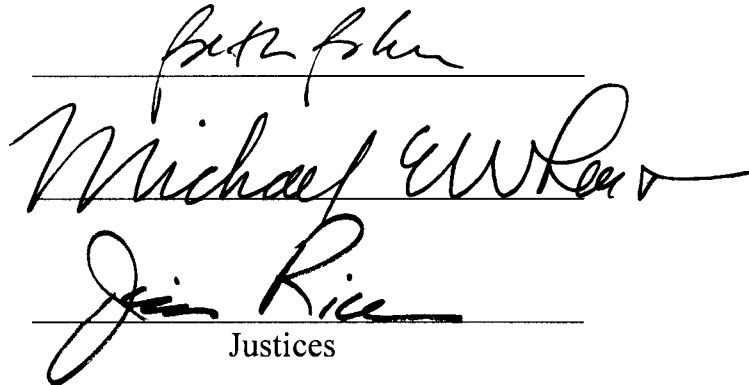 Beth Baker
Michael E Wheat
Jim Rice
Justices